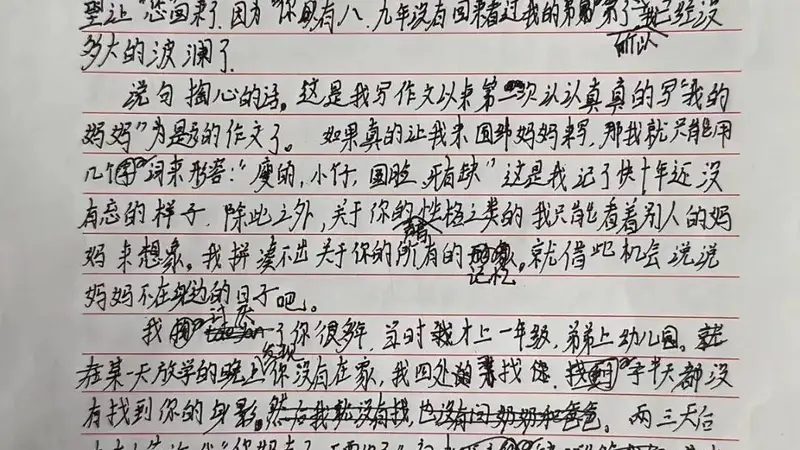 望让"您"回来了.因为"你俩有八.九年没有回来看过我的弟弟弟了我已经没
所以
多大的波澜了
说句掏心的话。这是我写作文以来第一次认认真真的写"我的
妈妈"为题的作文了。如果真的让我来回忆妈妈来写,那我就只能用
几个词来形容:"瘦的,小仔,圆脸,牙有缺"这是我记了快十年还没
有忘的样子.除此之外,关于你的性格之类的我只能看着别人的妈
妈来想象。我拼凑不出关于你的所有的
记忆。就借此机会说说
妈妈不在身边的日子吧。
我 了你很多年.当时我才上一年级,弟弟上幼儿园。就
发现
在某一天放学的晚上你没有在家,我四处 寻找您.找 了半天都没
有找到你的身影。然后我就没有找,也没有问奶奶和爸爸。两三天后